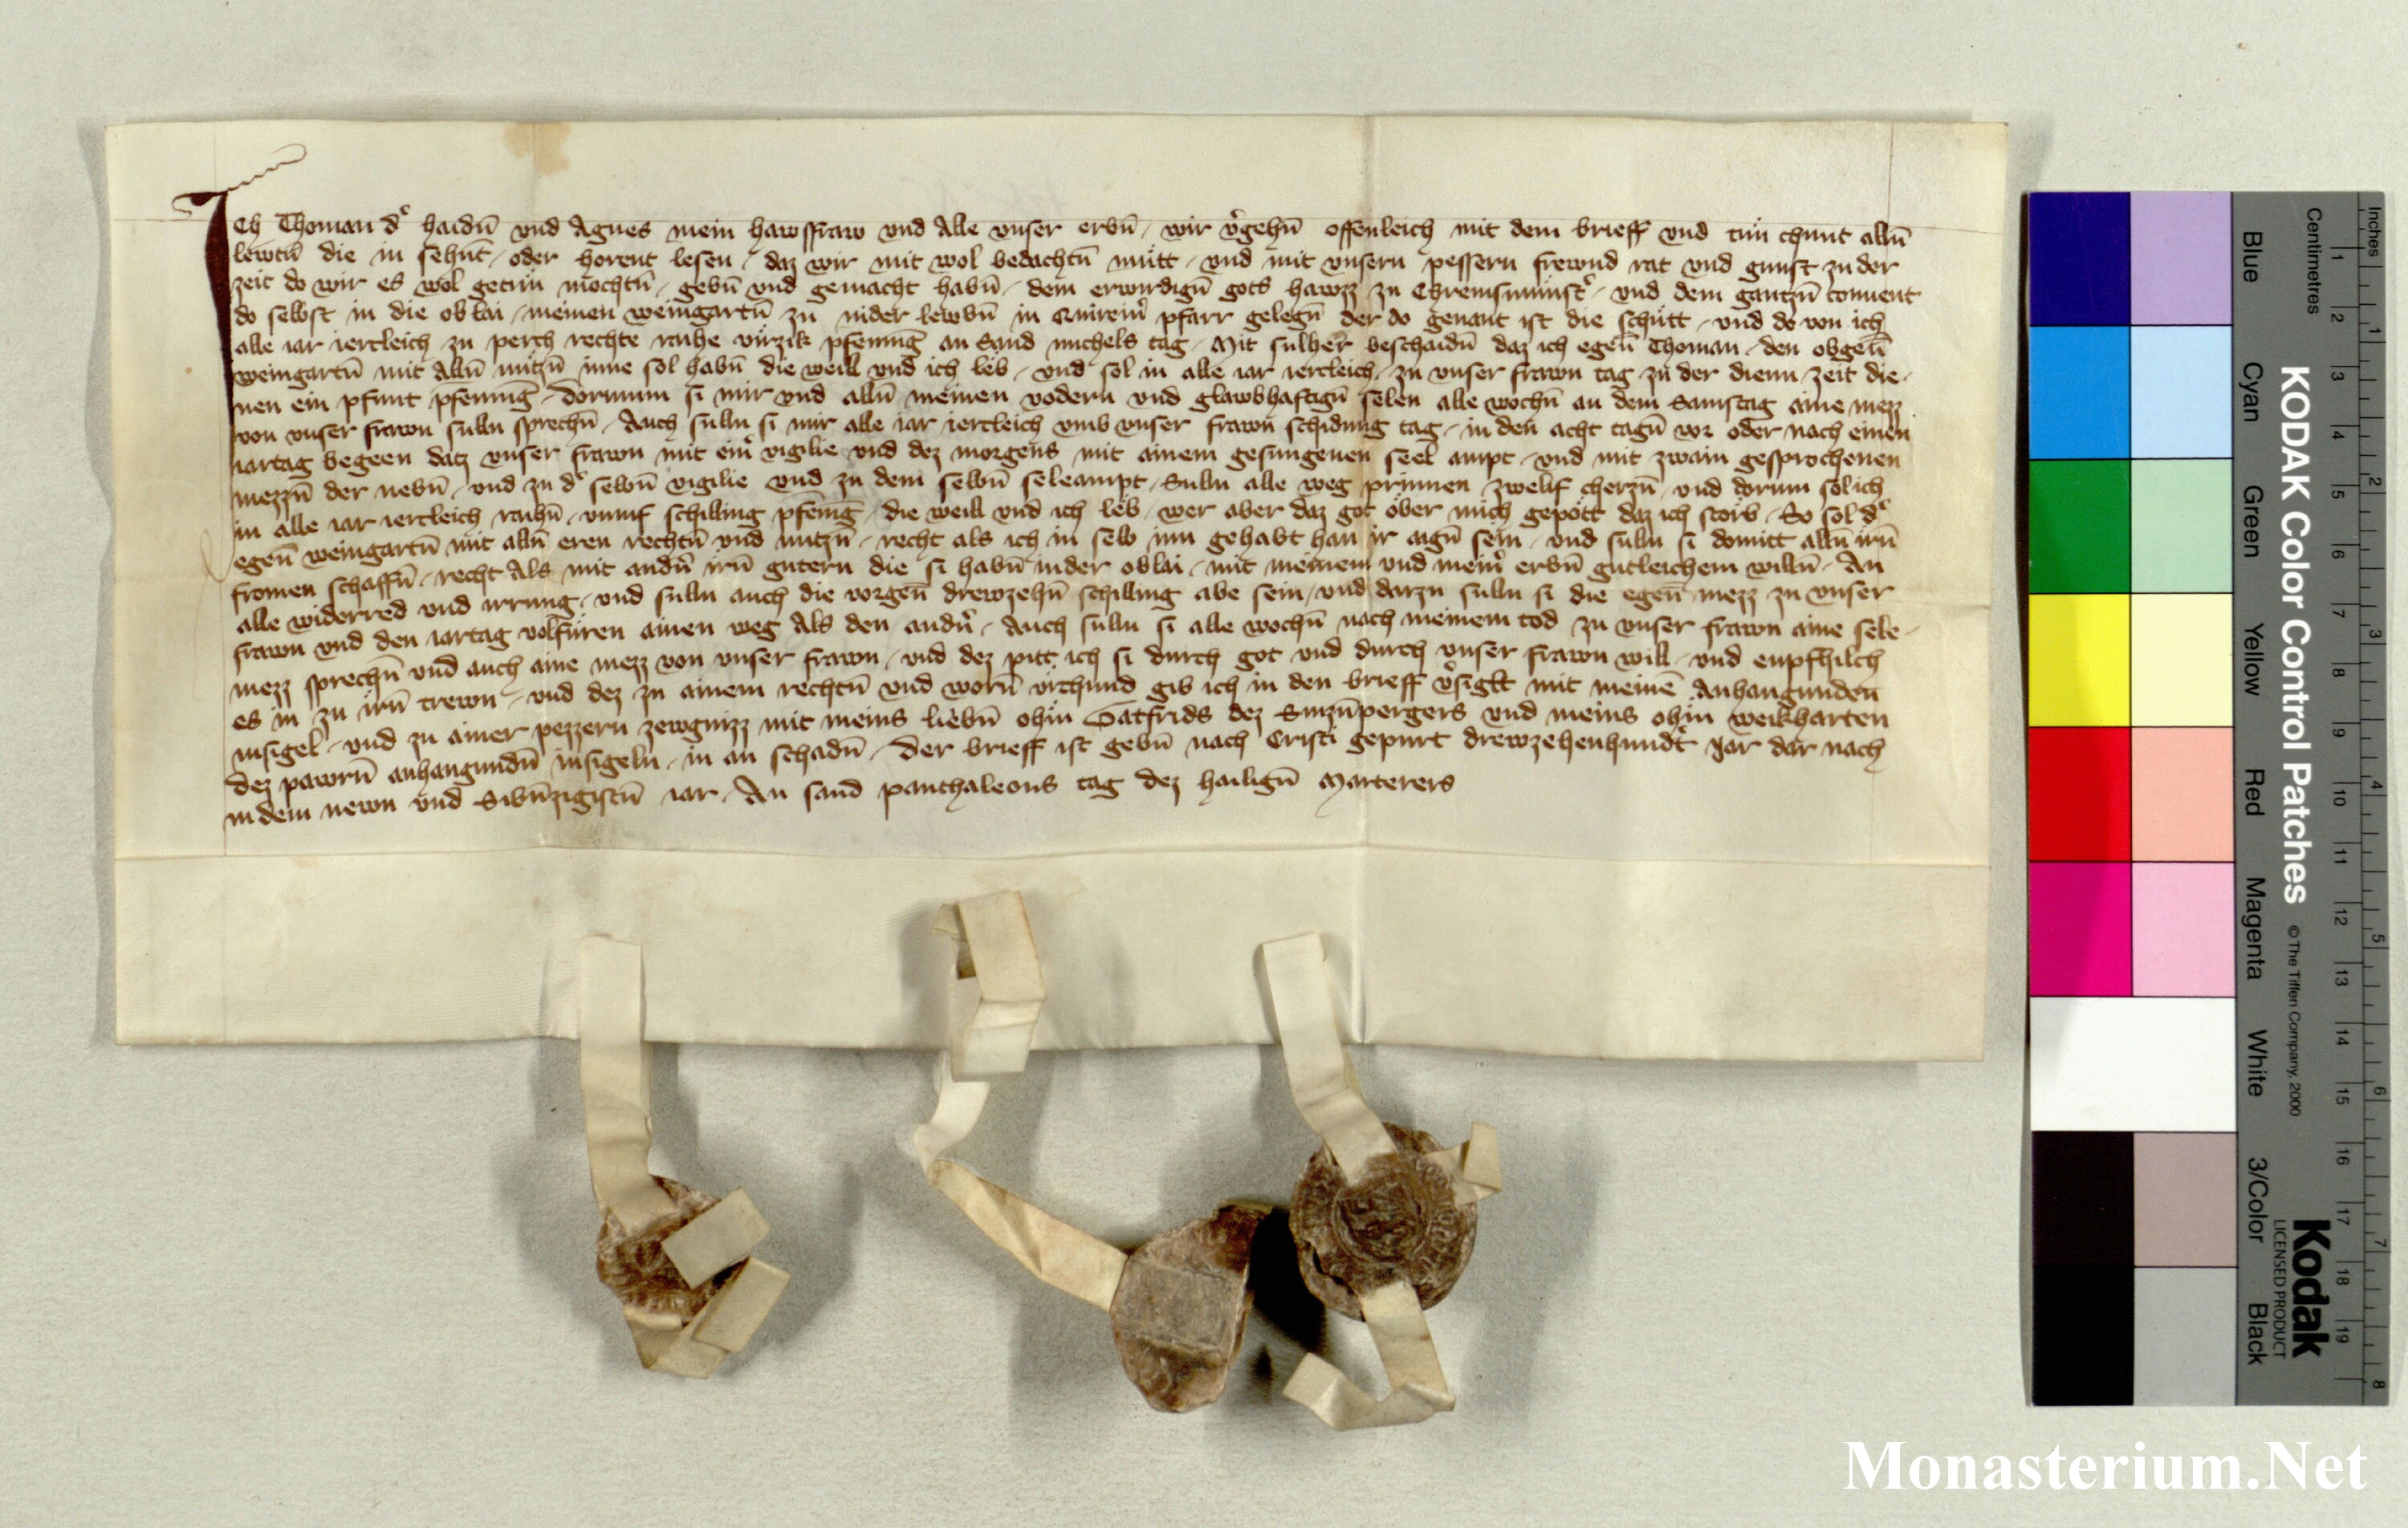 Ich Thoman dͨ haidn̄ vnd Agnes mein hawsfraw vnd Alle vnser erbn̄ / wir vͦgehn̄ offenleich mit dem brieff vnd tun chunt alln̄
lewtn̄ die in sehnt / oder horent lesen / daz wir mit wol bedachtn̄ mutt / vnd mit vnsern pessern frewnd rat vnd gunst zu der
zeit do wir es wol getun mochtn̄ / gebn̄ vnd gemacht habn̄ / dem erwirdign̄ gots hawzz zu Chremsmunstͨ / vnd dem gantzn̄ conuent
do selbst in die oblai / meinen weingartn̄ zu nider lewbn̄ in pfarr gelegn̄ der do genant ist die schütt / vnd do von ich
alle iar iertleich zu perch rechte raihe virzik pfening an Sand michels tag / Mit sulher beschaidn̄ daz ich egen̄ Thoman / den obgen̄
weingartn̄ mit Alln̄ nutzn̄ inne sol habn̄ die weill vnd ich leb / vnd sol in alle iar iertleich / zu vnser frawn tag zu der dienn zeit die-
nen ein pfunt pfening / dorumm si mir vnd alln̄ meinen vodern vnd glawbhaftign̄ selen alle wochn̄ an dem Samstag aine mezz
von vnser frawn sulln sprechn̄ / Auch sulln si mir alle iar iertleich vmb vnser frawn schidung tag / in den acht tagn̄ vor oder nach einen
iartag begeen datz vnser frawn mit einͬ vigilie vnd dez morgens mit ainem gesungenen seel ampt / vnd mit zwain gesprochenen
mezzn̄ der nebn̄ / vnd zu dͨ selbn̄ vigilie vnd zu dem selbn̄ seleampt / Sulln alle weg prinnen zwelif cherzn̄ / vnd dorum sol ich
in alle iar iertleich raihn̄ / vumf schilling pfening / die weill vnd ich leb / wer aber daz got ober mich gepott daz ich storb / So sol dͨ
egen̄ weingartn̄ mit alln̄ eren rechtn̄ vnd nutzn̄ / recht als ich in selb inn gehabt han ir aign̄ sein / vnd sulln si domitt alln̄ irn̄
fromen schaffn̄ / recht Als mit andn̄ irn̄ gutern die si habn̄ in der oblai / mit meinem vnd meinͬ erbn̄ gutleichem willn̄ / An
alle widerred vnd irrung / vnd sulln auch die vorgen̄ drewzehn̄ schilling abe sein / vnd darzu sulln si die egen̄ mezz zu vnser
frawn vnd den iartag volfüren ainen weg Als den andn̄ / Auch sulln si alle wochn̄ nach meinem tod zu vnser frawn aine sele-
mezz sprechn̄ vnd auch aine mezz von vnser frawn / vnd dez pitt ich si durch got vnd durch vnser frawn will / vnd enpfhilch
es in zu irn̄ trewn / vnd dez zu ainem rechtn̄ vnd worn̄ vrchund gib ich in den brieff vͦsiglt mit meinē Anhangunden
insigel / vnd zu ainer pezzern zewgnizz mit meins liebn̄ ohin Gatfrids dez Sinzn̄pergers vnd meins ohin weikharten
dez pawrn̄ anhangundn̄ insigeln / in an schadn̄ / Der brieff ist gebn̄ nach Cristi gepurt drewzehenhundt Jar dar nach
in dem newn vnd Sibn̄zigistn̄ iar / An sand panthaleons tag dez hailign̄ Marterers
Inches
Centimetres
1 2 3 4 5 6 7 8
1 2 3 4 5 6 7 8 9 10 11 12 13 14 15 16 17 18 19
Blue Cyan Green Yellow Red Magenta White 3/Color Black
KODAK Color Control Patches
© The Tiffen Company, 2000
Kodak
LICENSED PRODUCT
Monasterium.Net